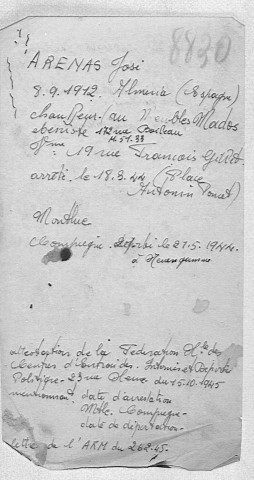 8830
ARENAS José
8.9.1912. Almeria (Espagne)
chauffeur (au Meubles Mados
ébéniste 172 rue Boileau
M 51.33
19 rue François
arrêté le 18.3.44 (Place
Antonin Poncet)
Montluc
Compiègne. déporté le 21.5.1944
à Neuengamme
attestations de la Fédération Nle des
Centres d'Entraide. Internés et Déportés
Politiques - 23 rue du 15.10.1945
mentionnant date d'arrestation
Mtlc. Compiègne-
date de déportation-
lettre de l'ARM du 26.2.45.